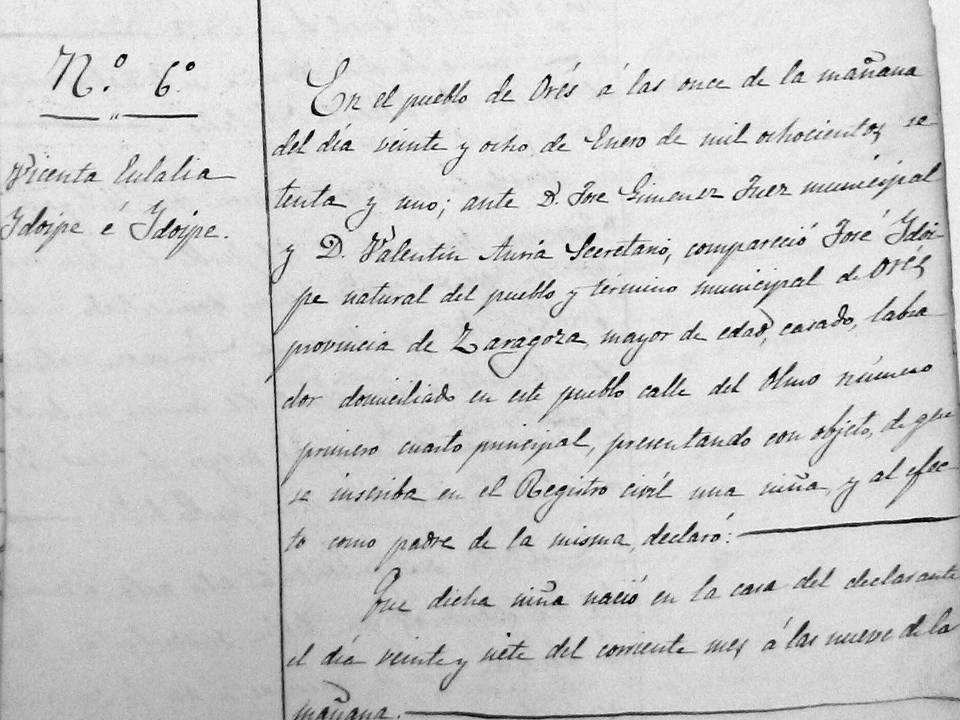 Nº. 6º
Vicenta Eulalia
Ydoipe é Ydoipe.
En el pueblo de Orés á las once de la mañana
del día veinte y ocho de Enero de mil ochocientos se-
tenta y uno; ante D. José Gimenez Juez municipal
y D. Valentin Auria Secretario, compareció José Ydoi-
pe natural del pueblo y término municipal de Orés
provincia de Zaragoza, mayor de edad, casado, labra
dor domiciliado en este pueblo calle del Olmo número
primero cuarto principal, presentando con objeto, de que
se inscriba en el Registro civil una niña, y al efec-
to como padre de la misma, declaró:
Que dicha niña nació en la casa del declarante
el día veinte y siete del corriente mes á las nueve de la
mañana.